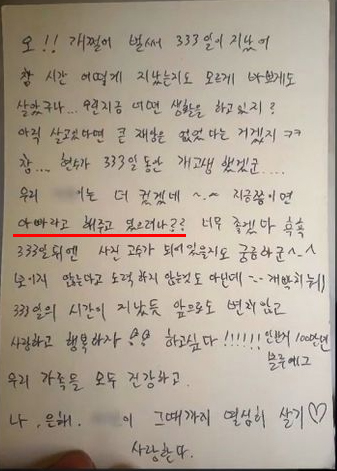 오!! 개쩔어 벌써 333일이 지났어
참 시간 어떻게 지났는지도 모르게 바쁘게도
살았구나... 우린지금 어떤 생활을 하고있지?
아직 살고있다면 큰 재앙은 없었다는 거겠지 ㅋㅋ
참... 현수가 333일 동안 개고생 했겠군....
우리 이는 더 컸겠네 ^.^ 지금쯤이면
아빠라고 해주고 있으려나?? 너무 좋겠다 흑흑
333일뒤엔 사진 고수가 되어있을지도 궁금하군^-^
보이지 않는다고 노력하지 않는것도 아닌데 개박치네
333일의 시간이 지났듯 앞으로도 변치않고
사랑하고 행복하자 하고싶다!!!!!! 인보기 100만뷰
우리 가족들 모두 건강하고
나, 은혜, 이 그때까지 열심히 살기♡
사랑한다.